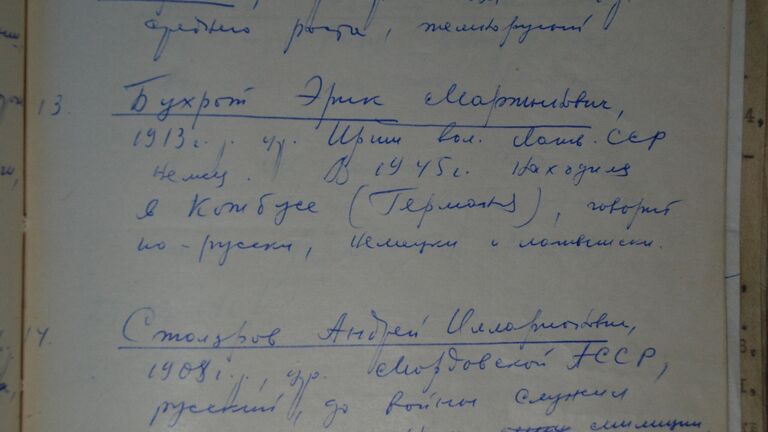 среднего роста, темнорусый
13. Бухрот Эрик Мартынович,
1913 г. р. ур. Ирши вол. Латв. ССР
немец. В 1945 г. находился
в Котбусе (Германия), говорит
по-русски, немецки и латышски.
14. Столяров Андрей Илларионович,
1908 г. р., ур. Мордовской АССР,
русский, до войны служил
милиции